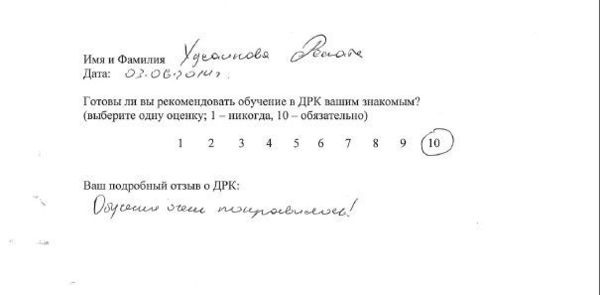 Имя и Фамилия Хусаинова Рената
Дата: 03.06.2014г.
Готовы ли вы рекомендовать обучение в ДРК вашим знакомым?
(выберите одну оценку; 1 – никогда, 10 – обязательно)
1 2 3 4 5 6 7 8 9 10
Ваш подробный отзыв о ДРК:
Обучение очень понравилось!